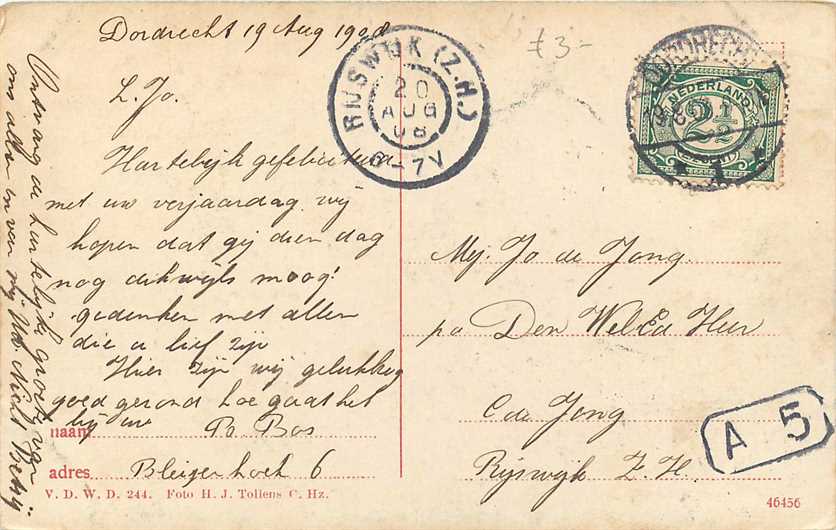 Dordrecht 19 Aug 1908
L. Jo.
Hartelijk gefeliciteerd
met uw verjaardag wij
hopen dat gij dien dag
nog dikwijls moog!
gedenken met allen
die u lief zijn
Hier zijn wij gelukkig
goed gezond hoe gaat het
bij uw
naam P. Bos
adres Bleijenhoek 6
V. D. W. D. 244. Foto H. J. Tollens C. Hz.
Ontvang de hartelijke groeten van
ons allen en van mij Uw Nicht Betsij
RIJSWIJK (Z.H.)
20
AUG
08
6-7V
£3-
DORDRECHT
NEDERLAND
2½
CENT
Mej. Jo de Jong
pa Den WelEd Heer
C de Jong
Rijswijk Z. H.
A 5
46456